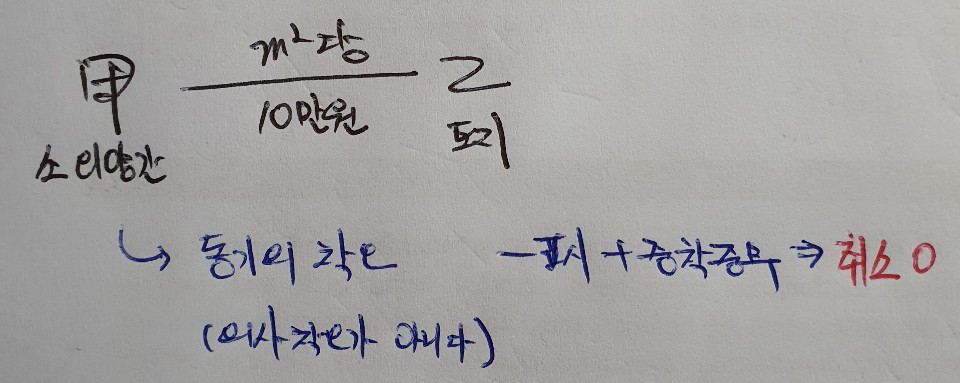 甲 m²당 乙
10만원
소 외양간 토지
↳ 동기의 착오 - 표시 + 중착중무 ⇒ 취소 O
(의사착오가 아니다)